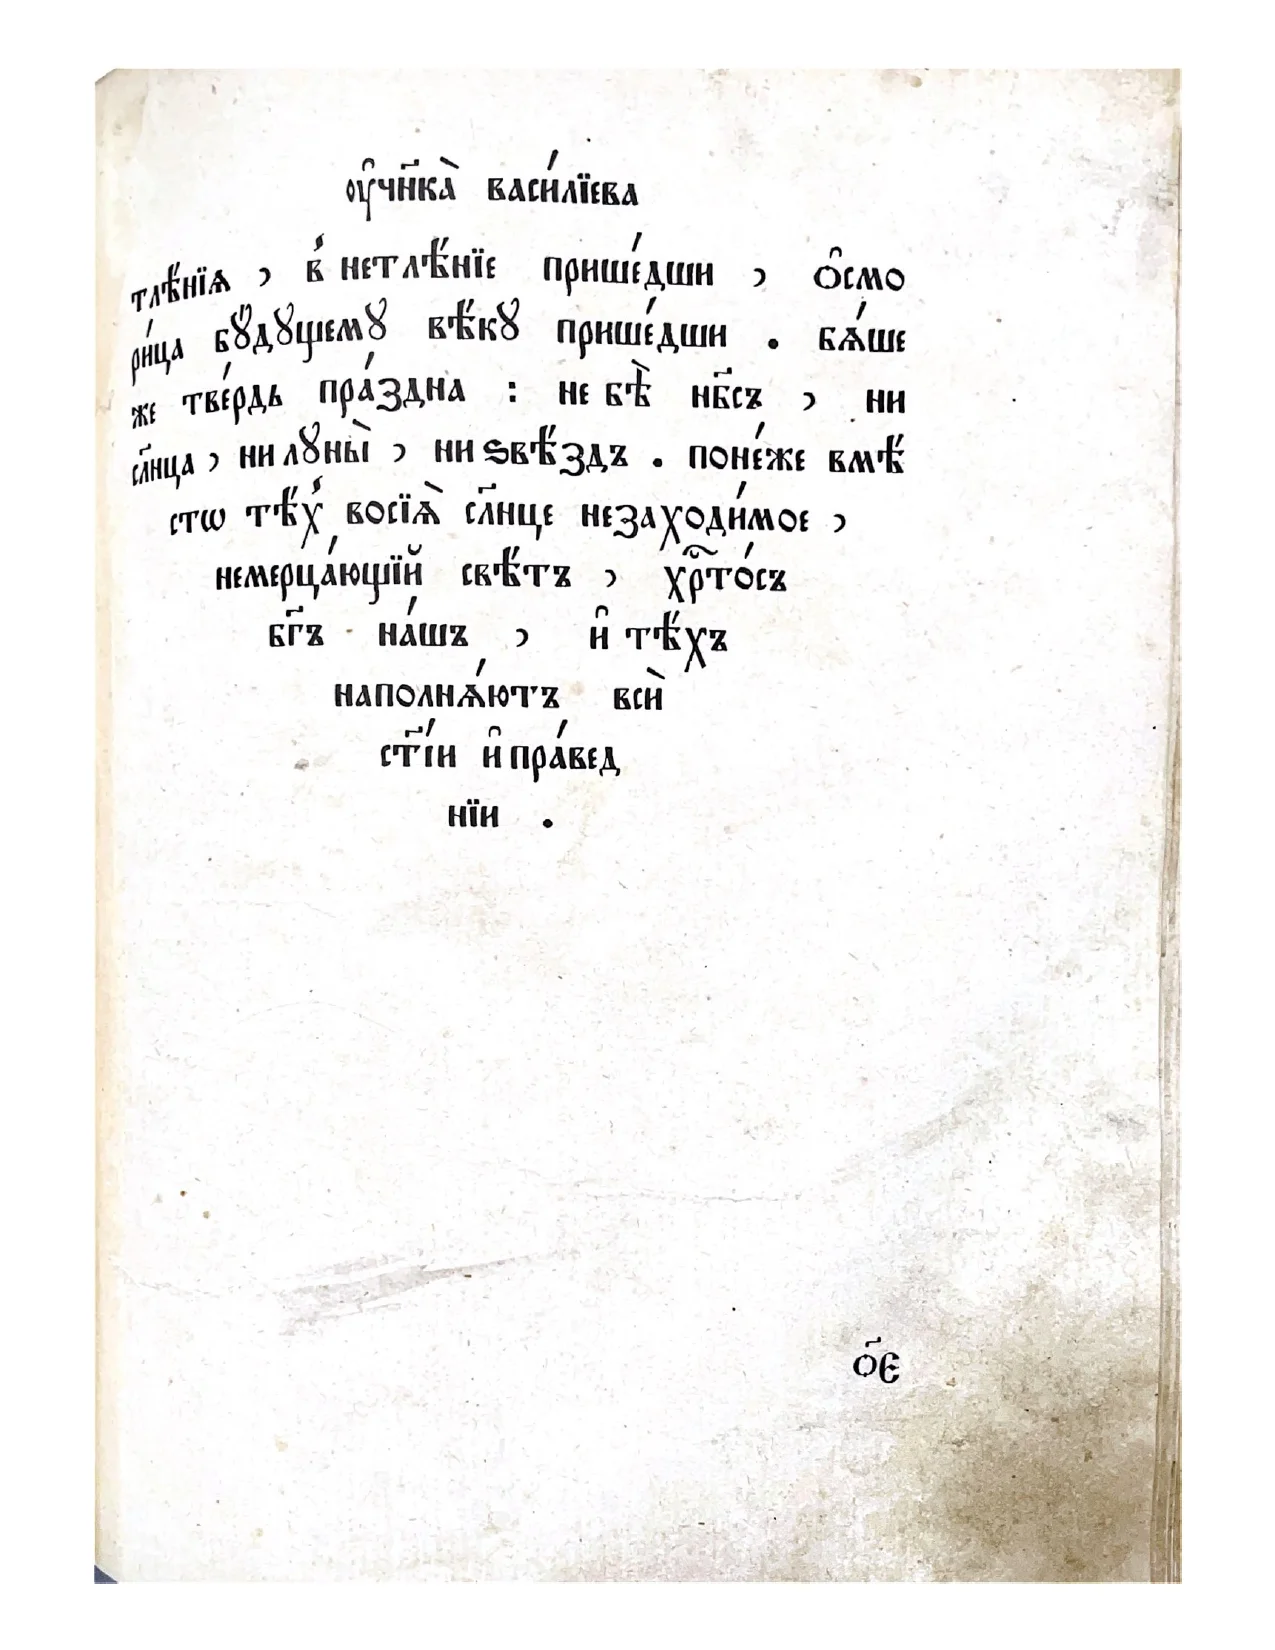 ᲂу҆чн҃кà васи́лїева
тлѣ́нїѧ , в̾ нетлѣ́нїе прише́дши , ѻ҆смо
ри́ца бꙋ́дꙋщемꙋ вѣ́кꙋ прише́дши . бѧ́ше
же тве́рдь пра́здна : не бѣ̀ нб҃съ , ни
сл҃нца , ни лꙋны̀ , ни ѕвѣ́здъ . поне́же вмѣ́
стѡ тѣ́х̾ восїѧ̀ сл҃нце незаходи́мое ,
немерца́ющїй свѣ́тъ , хрⷭ҇то́съ
бг҃ъ на́шъ , и҆ тѣ́хъ
наполнѧ́ютъ всѝ
ст҃і́и и҆ пра́вед
нїи .
ѻ҃є